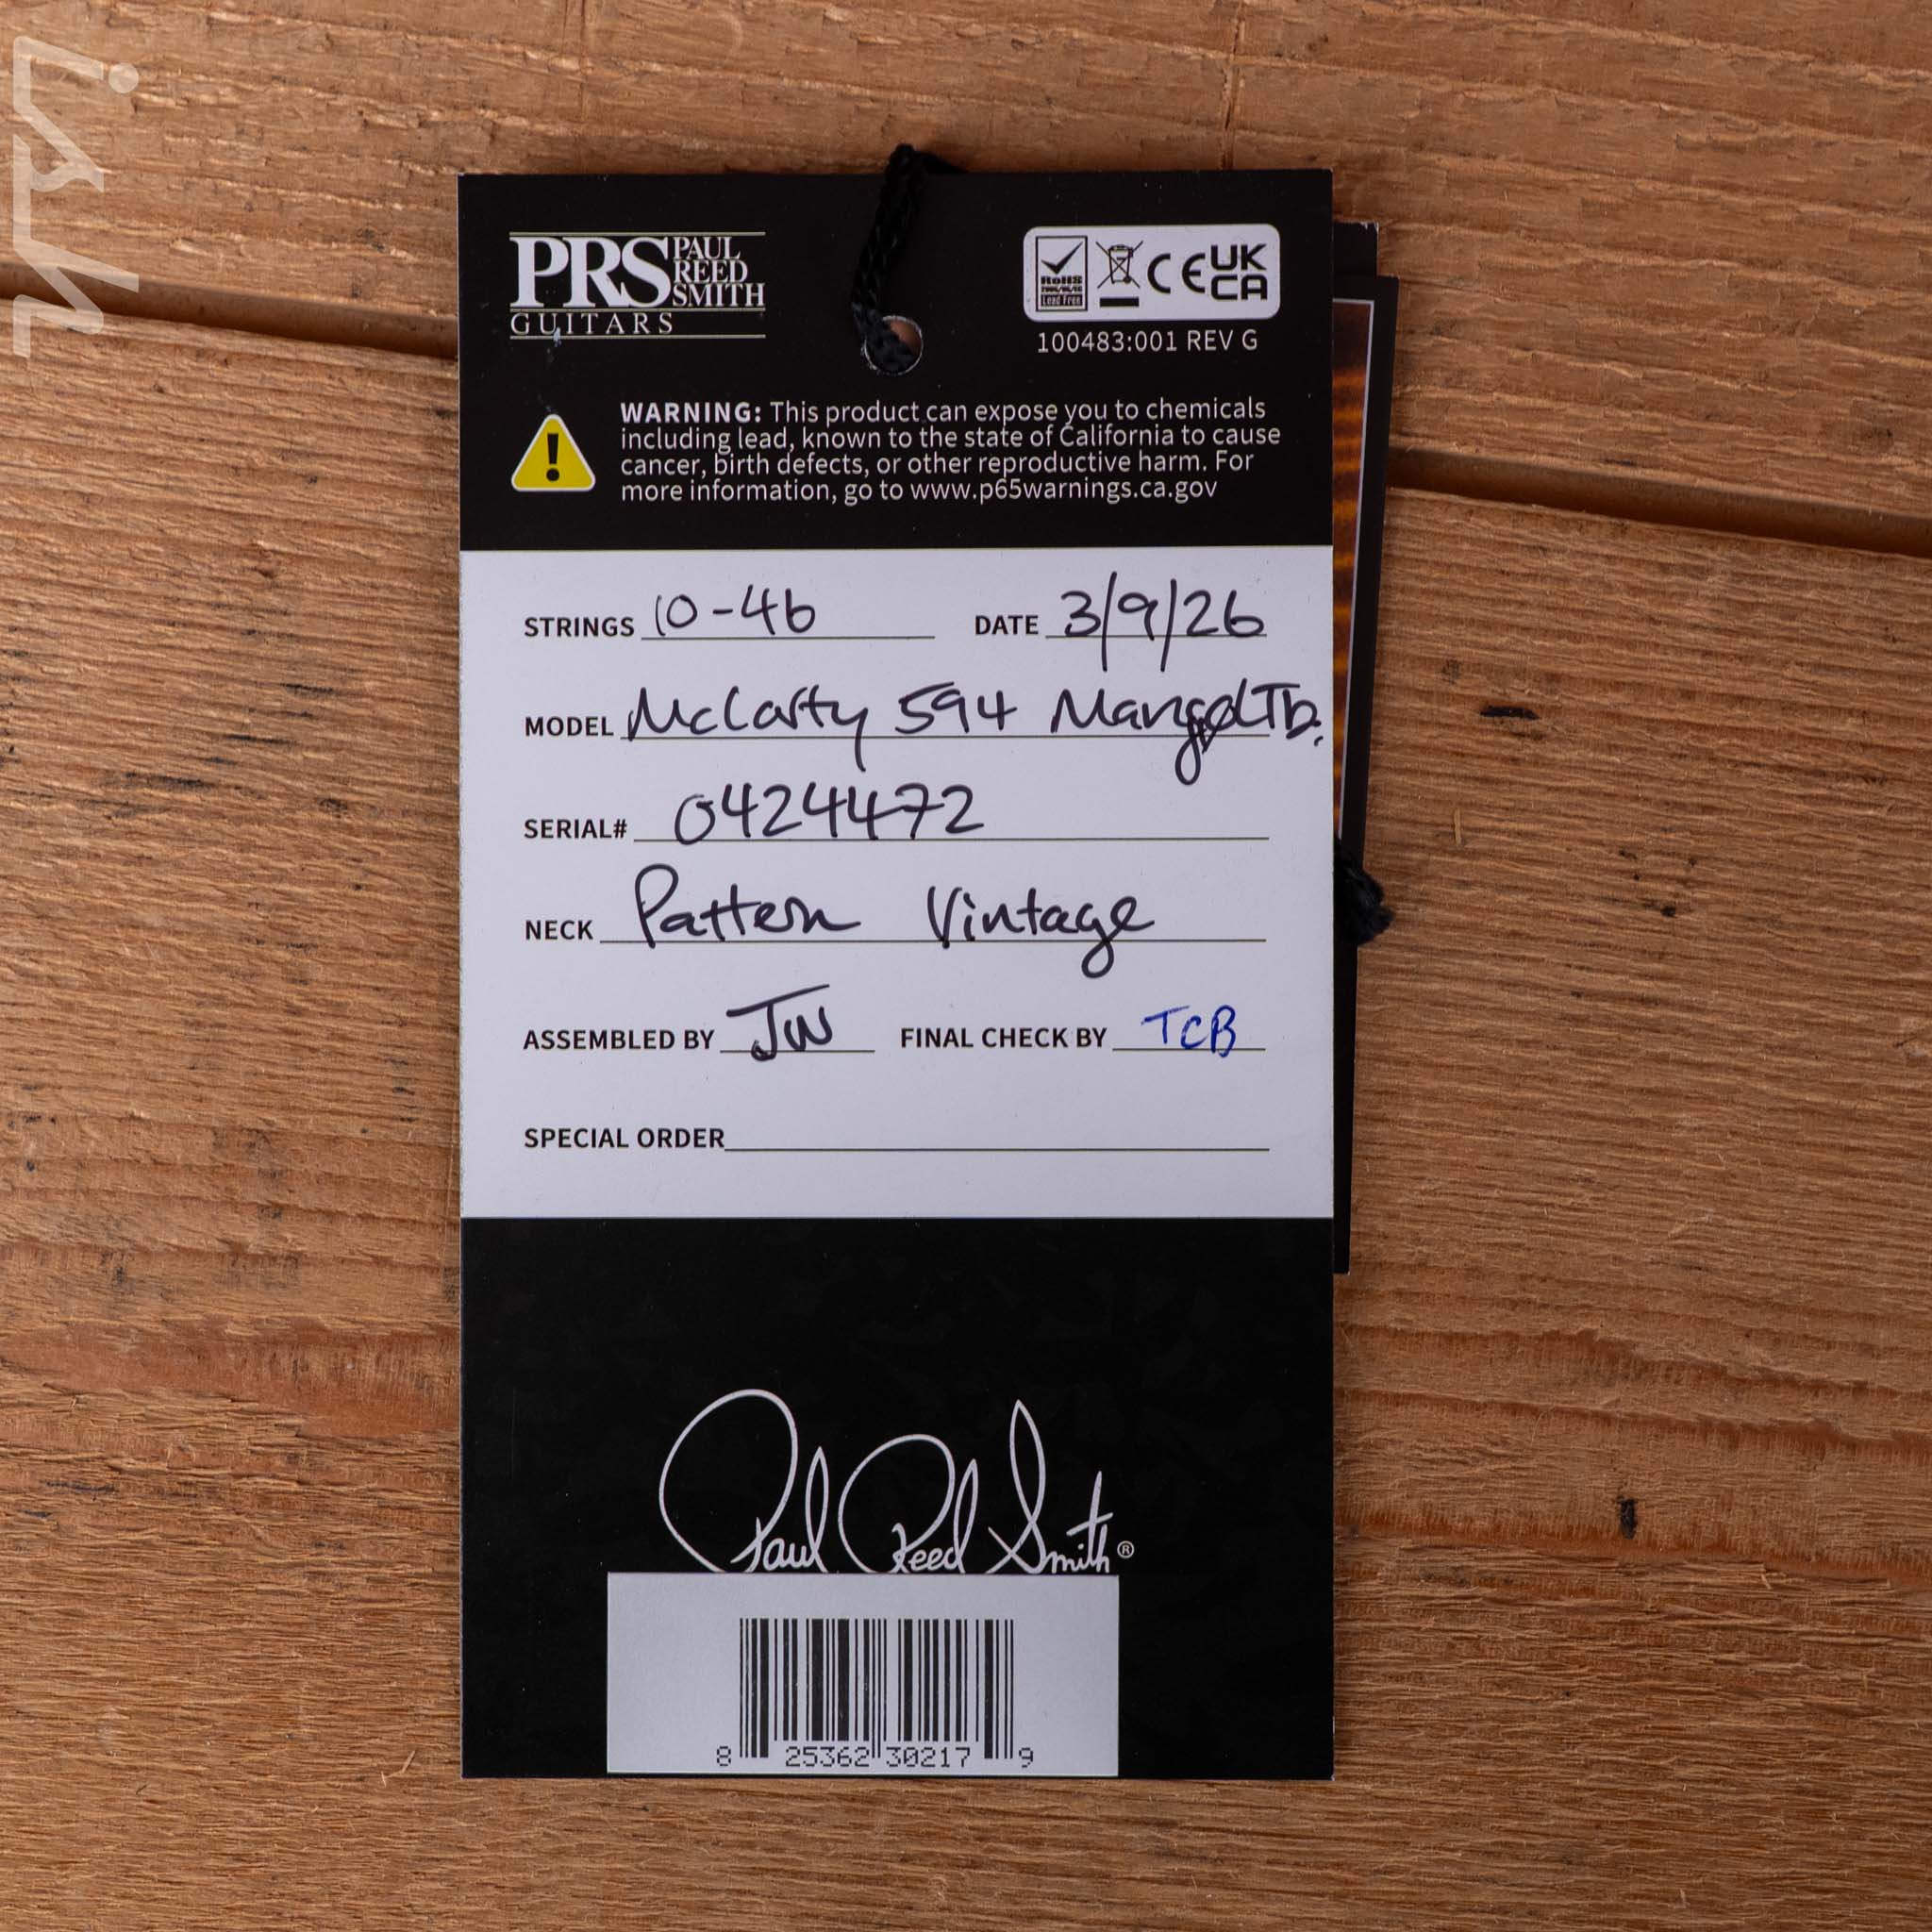 ish
PRS PAUL REED SMITH
GUITARS
RoHS
Lead Free
CE UK CA
100483:001 REV G
WARNING: This product can expose you to chemicals
including lead, known to the state of California to cause
cancer, birth defects, or other reproductive harm. For
more information, go to www.p65warnings.ca.gov
STRINGS 10-46 DATE 3/9/26
MODEL McCarty 594 Mango Tb.
SERIAL# 0424472
NECK Pattern Vintage
ASSEMBLED BY JW FINAL CHECK BY TCB
SPECIAL ORDER
Paul Reed Smith®
8 25362 30217 9